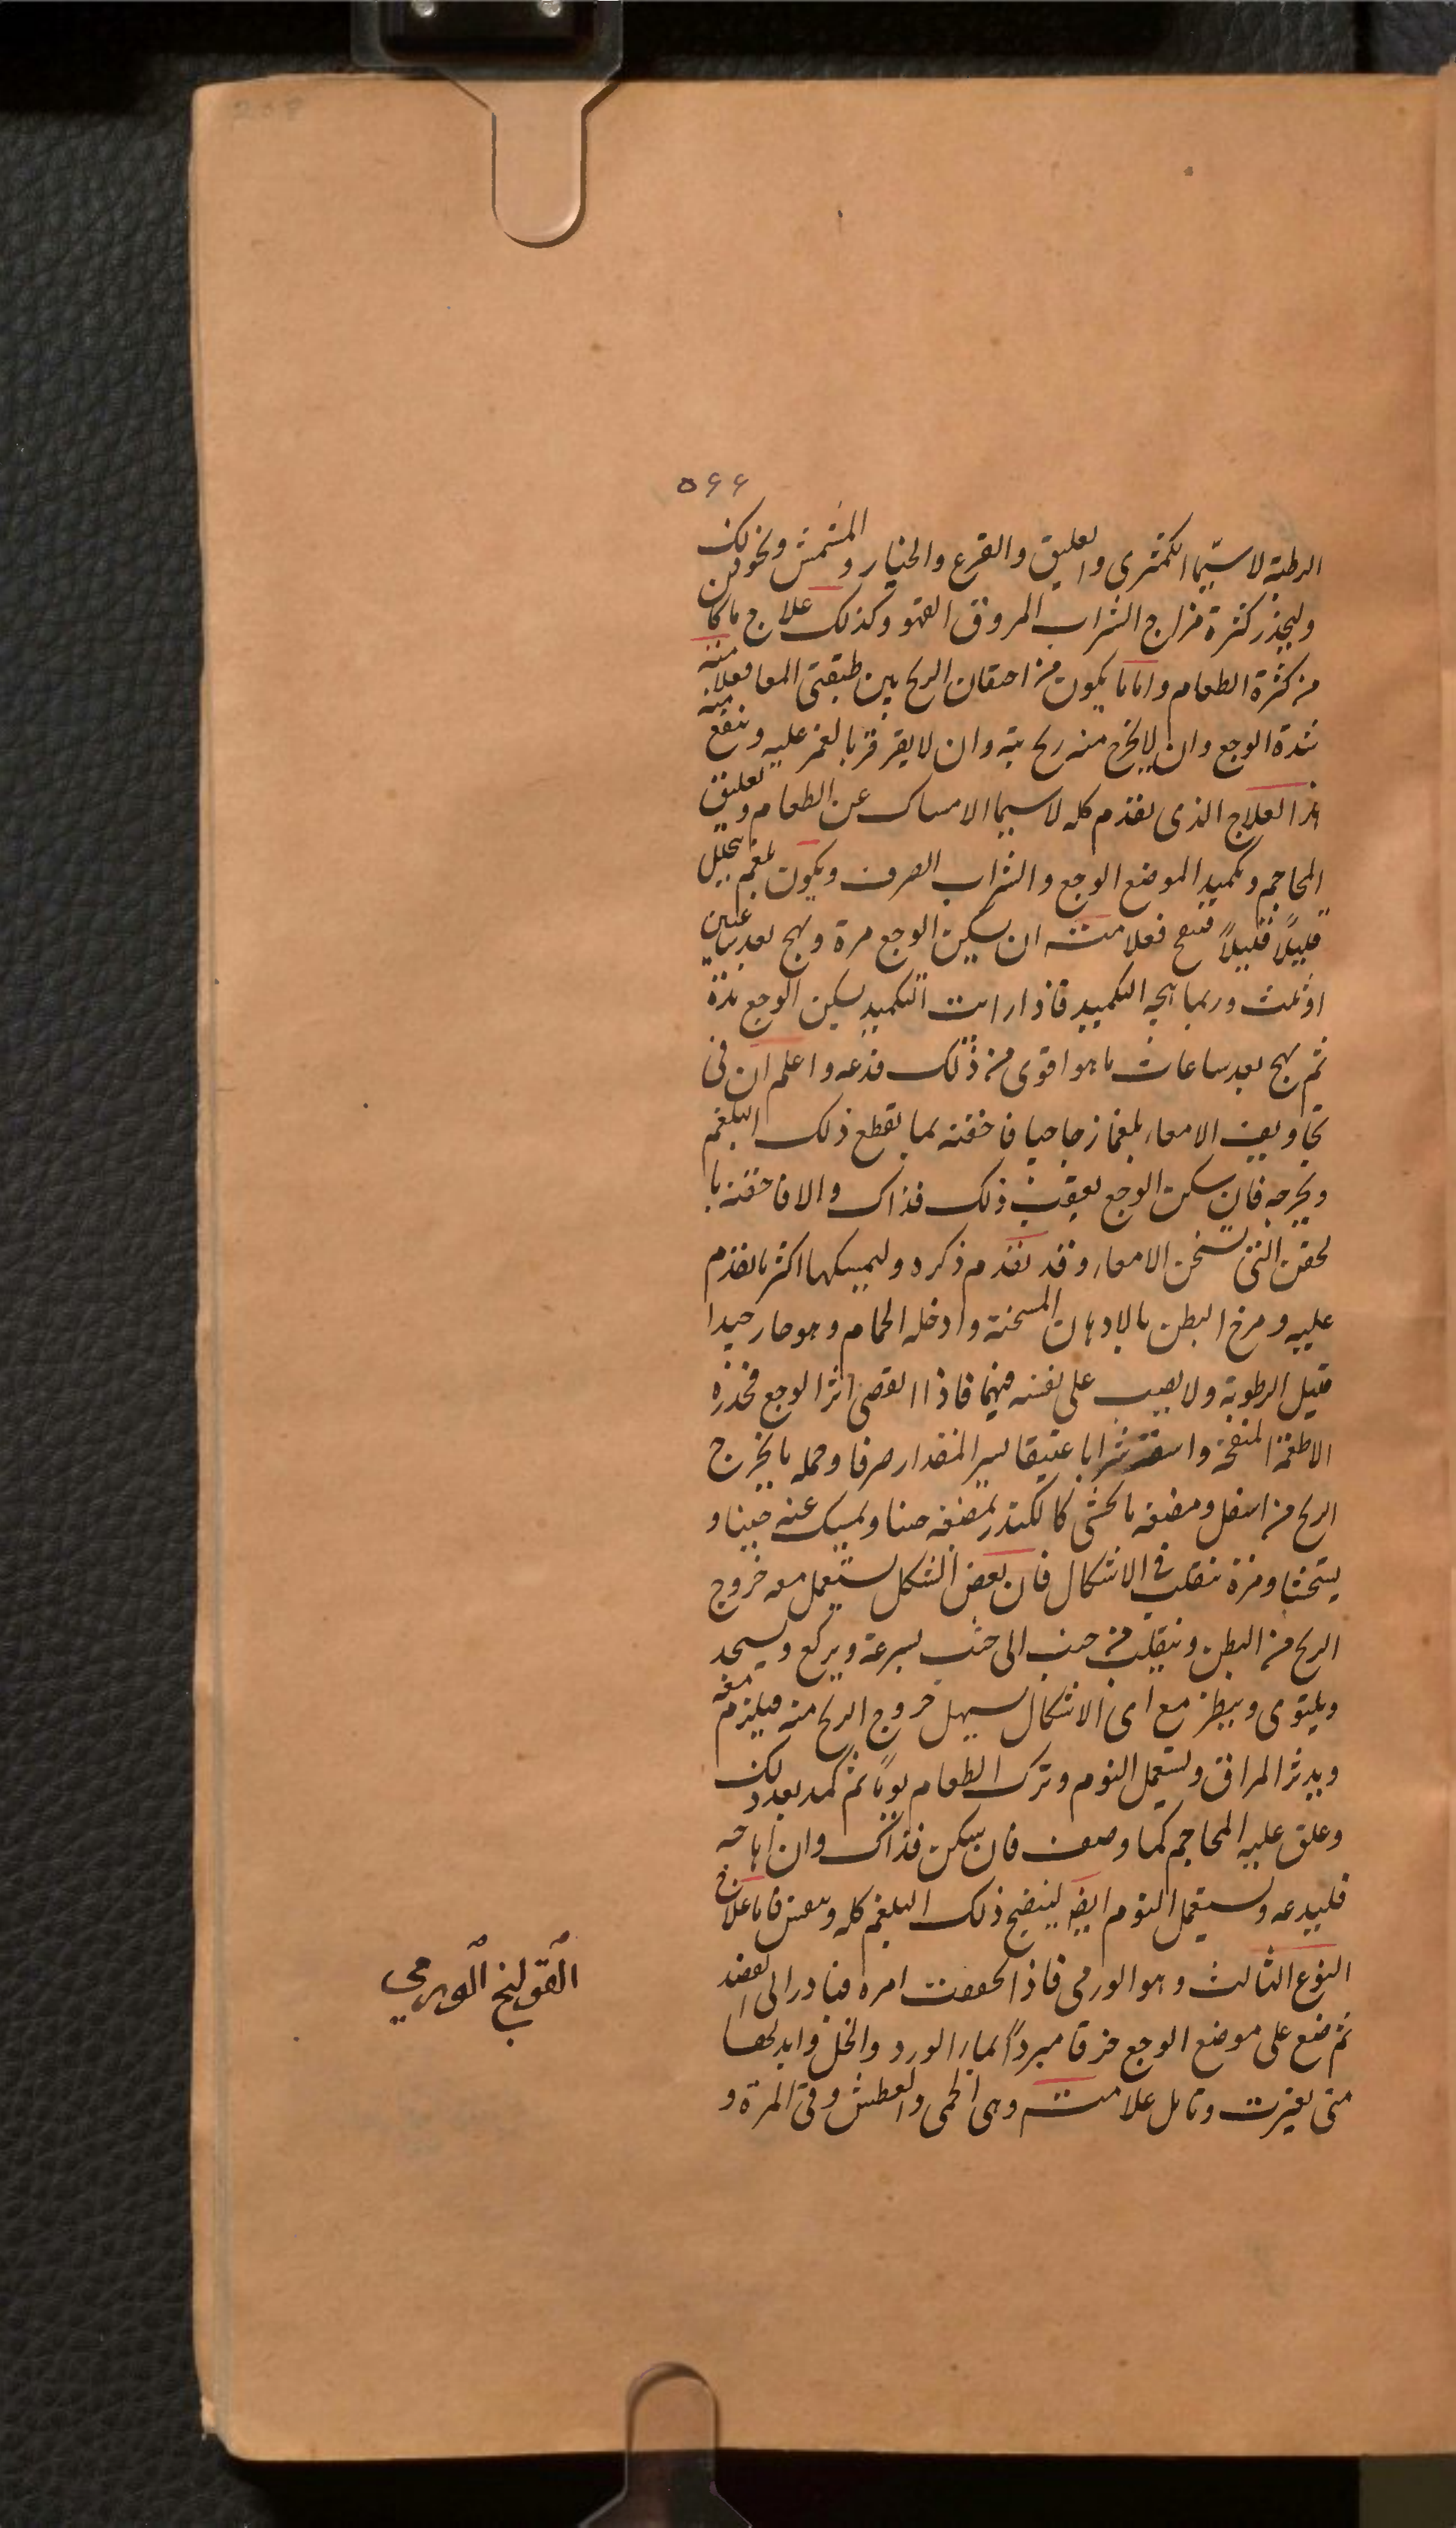 ٥٦٦
الرطبة لا سيّما الكمثرى والعليق والقرع والخيار والمشمش ونحو ذلك
وليحذر كثرة مزاج الشراب المروق القهو وكذلك علاج ما كان
من كثرة الطعام واما ما يكون من احتقان الريح بين طبقتى المعا فعلامته
شدة الوجع وان لا يخرج منه ريح بتة وان لا يقرقر بالغمز عليه وينفع منه
هذا العلاج الذى تقدم كله لا سيما الامساك عن الطعام وتعليق
المحاجم وتكميد الموضع الوجع والشراب الصرف ويكون بلغم يتحلل
قليلًا قليلًا فعلامته ان يسكن الوجع مرة ويهيج بعد ساعتين
او ثلث وربما هيجه التكميد فاذا رايت التكميد يسكن الوجع مدة
ثم يهيج بعد ساعات ما هو اقوى من ذلك فدعه واعلم ان فى
تجاويف الامعاء بلغما زجاجيا فاحقنه بما يقطع ذلك البلغم
ويخرجه فان سكن الوجع بعقب ذلك فذاك والا فاحقنه با
لحقن التى تسخن الامعاء وقد تقدم ذكره وليمسكها اكثر ما تقدم
عليه ومرخ البطن بالادهان المسخنة وادخله الحمام وهو حار جيدا
قليل الرطوبة ولا يصب على نفسه فيها فاذا انقضى اثر الوجع فحذره
الاطعمة المنفخة واسقه شرابا عتيقا يسير المقدار صرفا وحمله ما يخرج
الريح من اسفل ومضغه ما يجشى كالكندر يمضغه حينا ويمسك عنه حينا و
يتجشا ومره يتقلب فى الاشكال فان بعض الشكل يستعمل معه خروج
الريح من البطن ويتقلب من جنب الى جنب بسرعة ويركع ويسجد
ويلتوى وينظر مع اى الاشكال يسهل خروج الريح منه فيلزم معه
ويدثر المراق ويستعمل النوم وترك الطعام يومًا ثم كمد بعد ذلك
وعلق عليه المحاجم كما وصف فان سكن فذاك وان هاجه
فليدعه ويستعمل النوم ايض لينضج ذلك البلغم كله فاما علاج
النوع الثالث وهو الورمى فاذا تحققت امره فبادر الى الفصد
ثم ضع على موضع الوجع خرقا مبردًا بماء الورد والخل وابدلها
متى تغيرت وتامل علامته وهى الحمى والعطش وقئ المرة و
القولنج الورمي